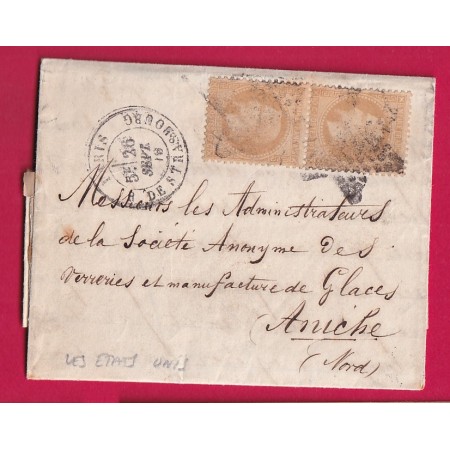 PARIS
R. DE STRASBOURG
5E 26
SEPT.
Messieurs les Administrateurs
de la Société Anonyme des
Verreries et manufacture de Glaces
Aniche
(Nord)
LES ETATS UNIS